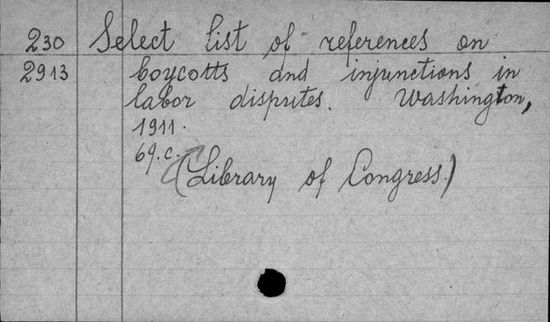 230 Select list of references on
2913 boycotts and injunctions in
labor disputes. Washington,
1911.
69.c.
(Library of Congress.)